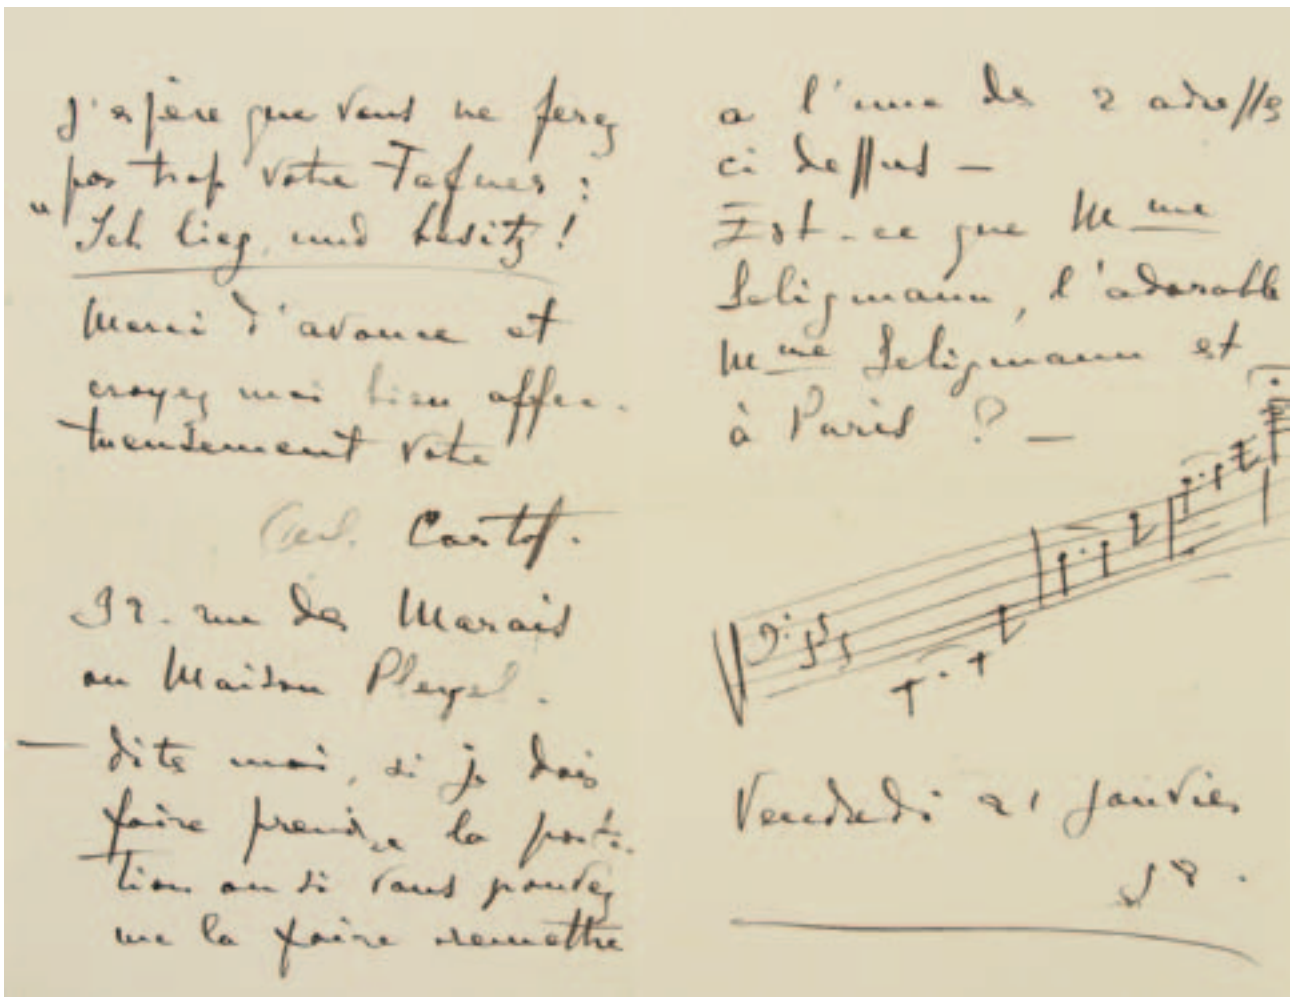 j'espère que vous ne ferez
pas trop votre Fafner :
"Ich lieg und besitz !
Merci d'avance et
croyez moi bien affec-
tueusement votre
Cortot.
32. rue des Marais
ou Maison Pleyel.
— dites moi, si je dois
faire prendre la parti-
tion ou si vous pouvez
me la faire remettre
a l'une des 2 adresses
ci dessus —
Est-ce que Mme
Seligmann, l'adorable
Mme Seligmann est
à Paris ? —
Vendredi 21 Janvier
98.